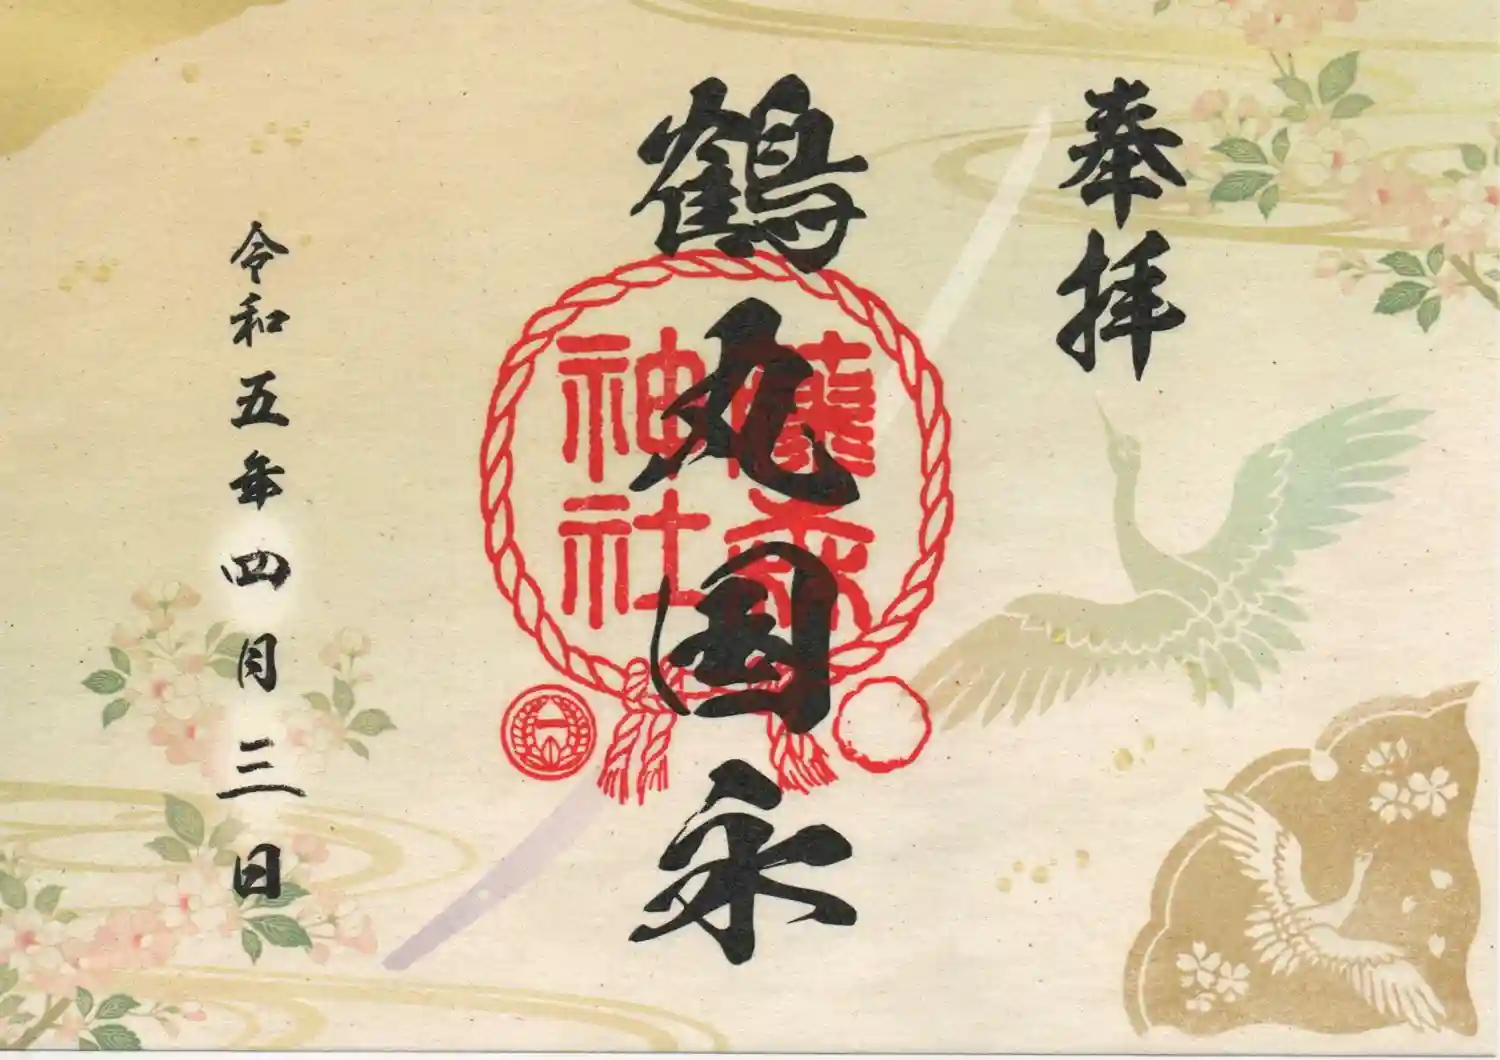 奉拝
鶴丸国永
藤森神社
令和五年四月三日